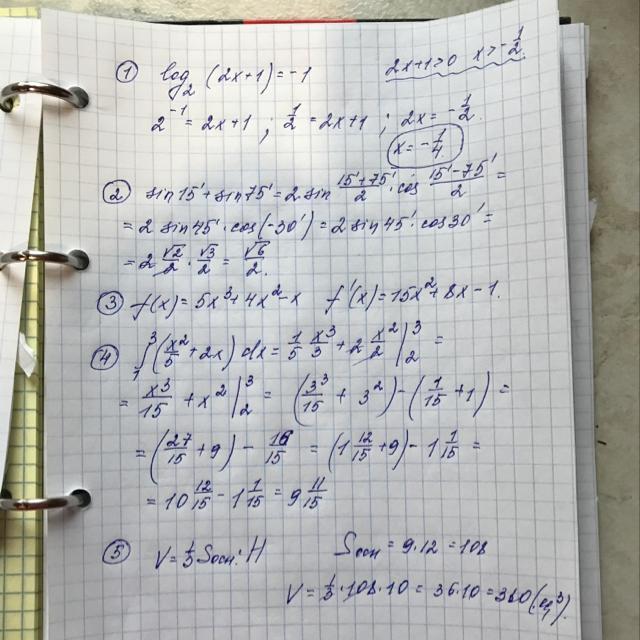 ① log₂ (2x+1) = -1    2x+1>0  x>-1/2
2⁻¹ = 2x+1 ; 1/2 = 2x+1 ; 2x = -1/2.
x = -1/4.
② sin15' + sin75' = 2·sin (15'+75')/2 · cos (15'-75')/2 =
= 2 sin45'·cos(-30') = 2 sin45'·cos30' =
= 2 √2/2 · √3/2 = √6/2.
③ f(x) = 5x³+4x²-x    f'(x) = 15x²+8x-1.
④ ∫₁³ (x²/5 + 2x) dx = 1/5 x³/3 + 2 x²/2 |₂³ =
= x³/15 + x² |₂³ = (3³/15 + 3²) - (1/15 + 1) =
= (27/15 + 9) - 16/15 = (1 12/15 + 9) - 1 1/15 =
= 10 12/15 - 1 1/15 = 9 11/15
⑤ V = 1/3 Sосн·H    Sосн = 9·12 = 108
V = 1/3·108·10 = 36·10 = 360 (см³).